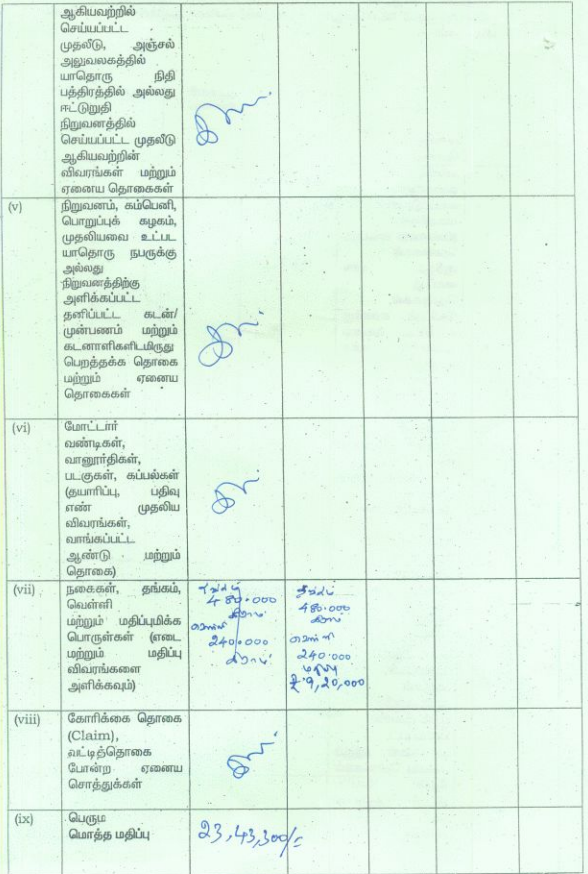 ஆகியவற்றில்
செய்யப்பட்ட
முதலீடு, அஞ்சல்
அலுவலகத்தில்
யாதொரு நிதி
பத்திரத்தில் அல்லது
ஈட்டுறுதி
நிறுவனத்தில்
செய்யப்பட்ட முதலீடு
ஆகியவற்றின்
விவரங்கள் மற்றும்
ஏனைய தொகைகள்
(v) நிறுவனம், கம்பெனி,
பொறுப்புக் கழகம்,
முதலியவை உட்பட
யாதொரு நபருக்கு
அல்லது
நிறுவனத்திற்கு
அளிக்கப்பட்ட
தனிப்பட்ட கடன்/
முன்பணம் மற்றும்
கடனாளிகளிடமிருது
பெறத்தக்க தொகை
மற்றும் ஏனைய
தொகைகள்
(vi) மோட்டார்
வண்டிகள்,
வானூர்திகள்,
படகுகள், கப்பல்கள்
(தயாரிப்பு, பதிவு
எண் முதலிய
விவரங்கள்,
வாங்கப்பட்ட
ஆண்டு மற்றும்
தொகை)
(vii) நகைகள், தங்கம்,
வெள்ளி
மற்றும் மதிப்புமிக்க
பொருள்கள் (எடை
மற்றும் மதிப்பு
விவரங்களை
அளிக்கவும்)
480.000
கிராம்
240.000
கிராம்
480.000
கிராம்
240.000
மதிப்பு
₹ 9,20,000
(viii) கோரிக்கை தொகை
(Claim),
வட்டித்தொகை
போன்ற ஏனைய
சொத்துக்கள்
(ix) பெரும
மொத்த மதிப்பு
23,43,300/=